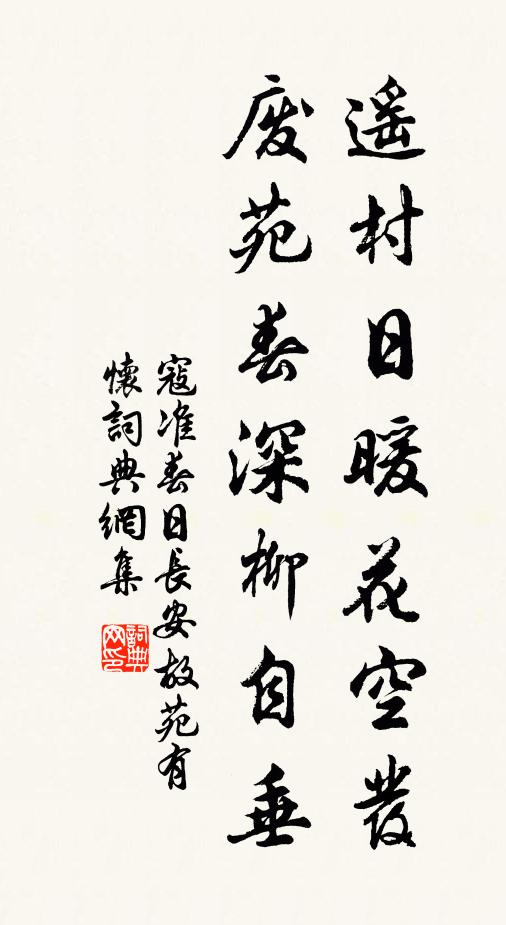 遥村日暖花空發
废苑春深柳自垂
寇准春日長安故苑有
懷詞典網集
詞典
网印